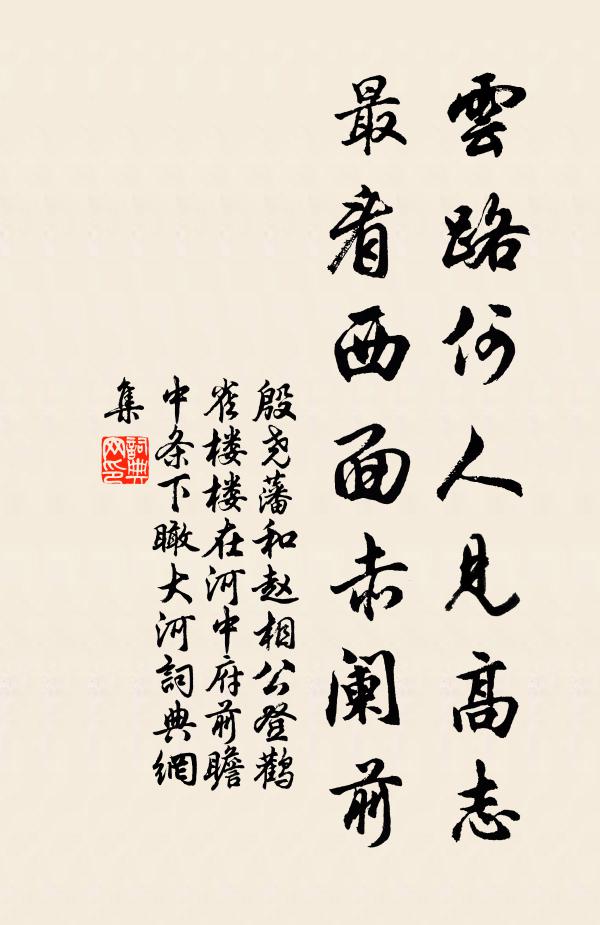 雲路何人見高志
最看西面赤闌前
殷尧藩和赵相公登鹳
雀楼楼在河中府前瞻
中条下瞰大河詞典網
集
詞典
网印